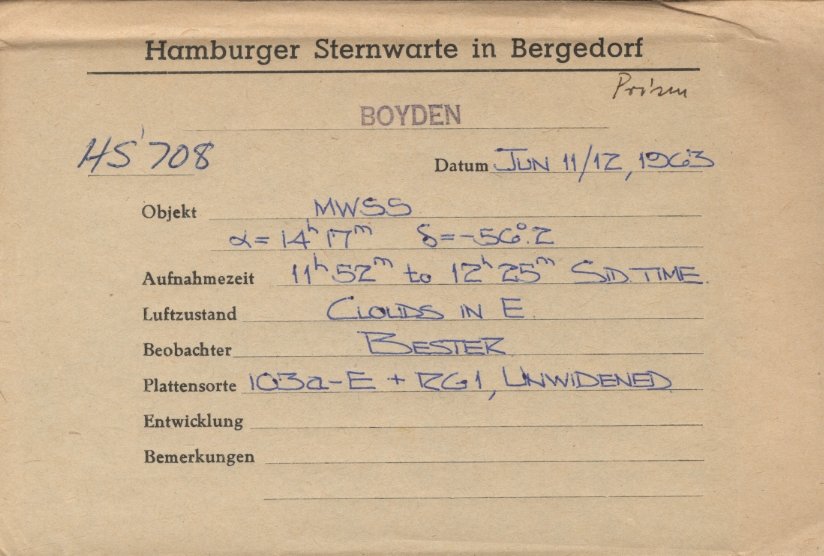 Hamburger Sternwarte in Bergedorf
Prism
BOYDEN
HS 708
Datum JUN 11/12, 1963
Objekt MWSS
α = 14h 17m δ = -56°.2
Aufnahmezeit 11h 52m to 12h 25m SID. TIME.
Luftzustand CLOUDS IN E.
Beobachter BESTER
Plattensorte 103a-E + RG1, UNWIDENED
Entwicklung
Bemerkungen